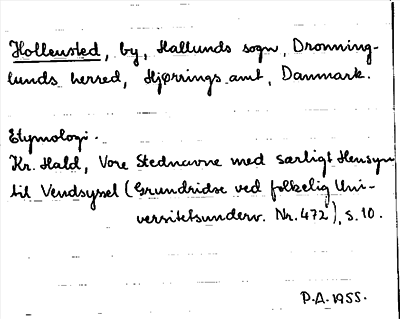 Hollensted, by, Hallunds sogn, Dronning-
lunds herred, Hjørrings amt, Danmark.
Etymologi.
Kr. Hald, Vore Stednavne med særligt Hensyn
til Vendsyssel (Grundridse ved folkelig Uni-
versitetsunderv. Nr. 472), s. 10.
P.A. 1955.